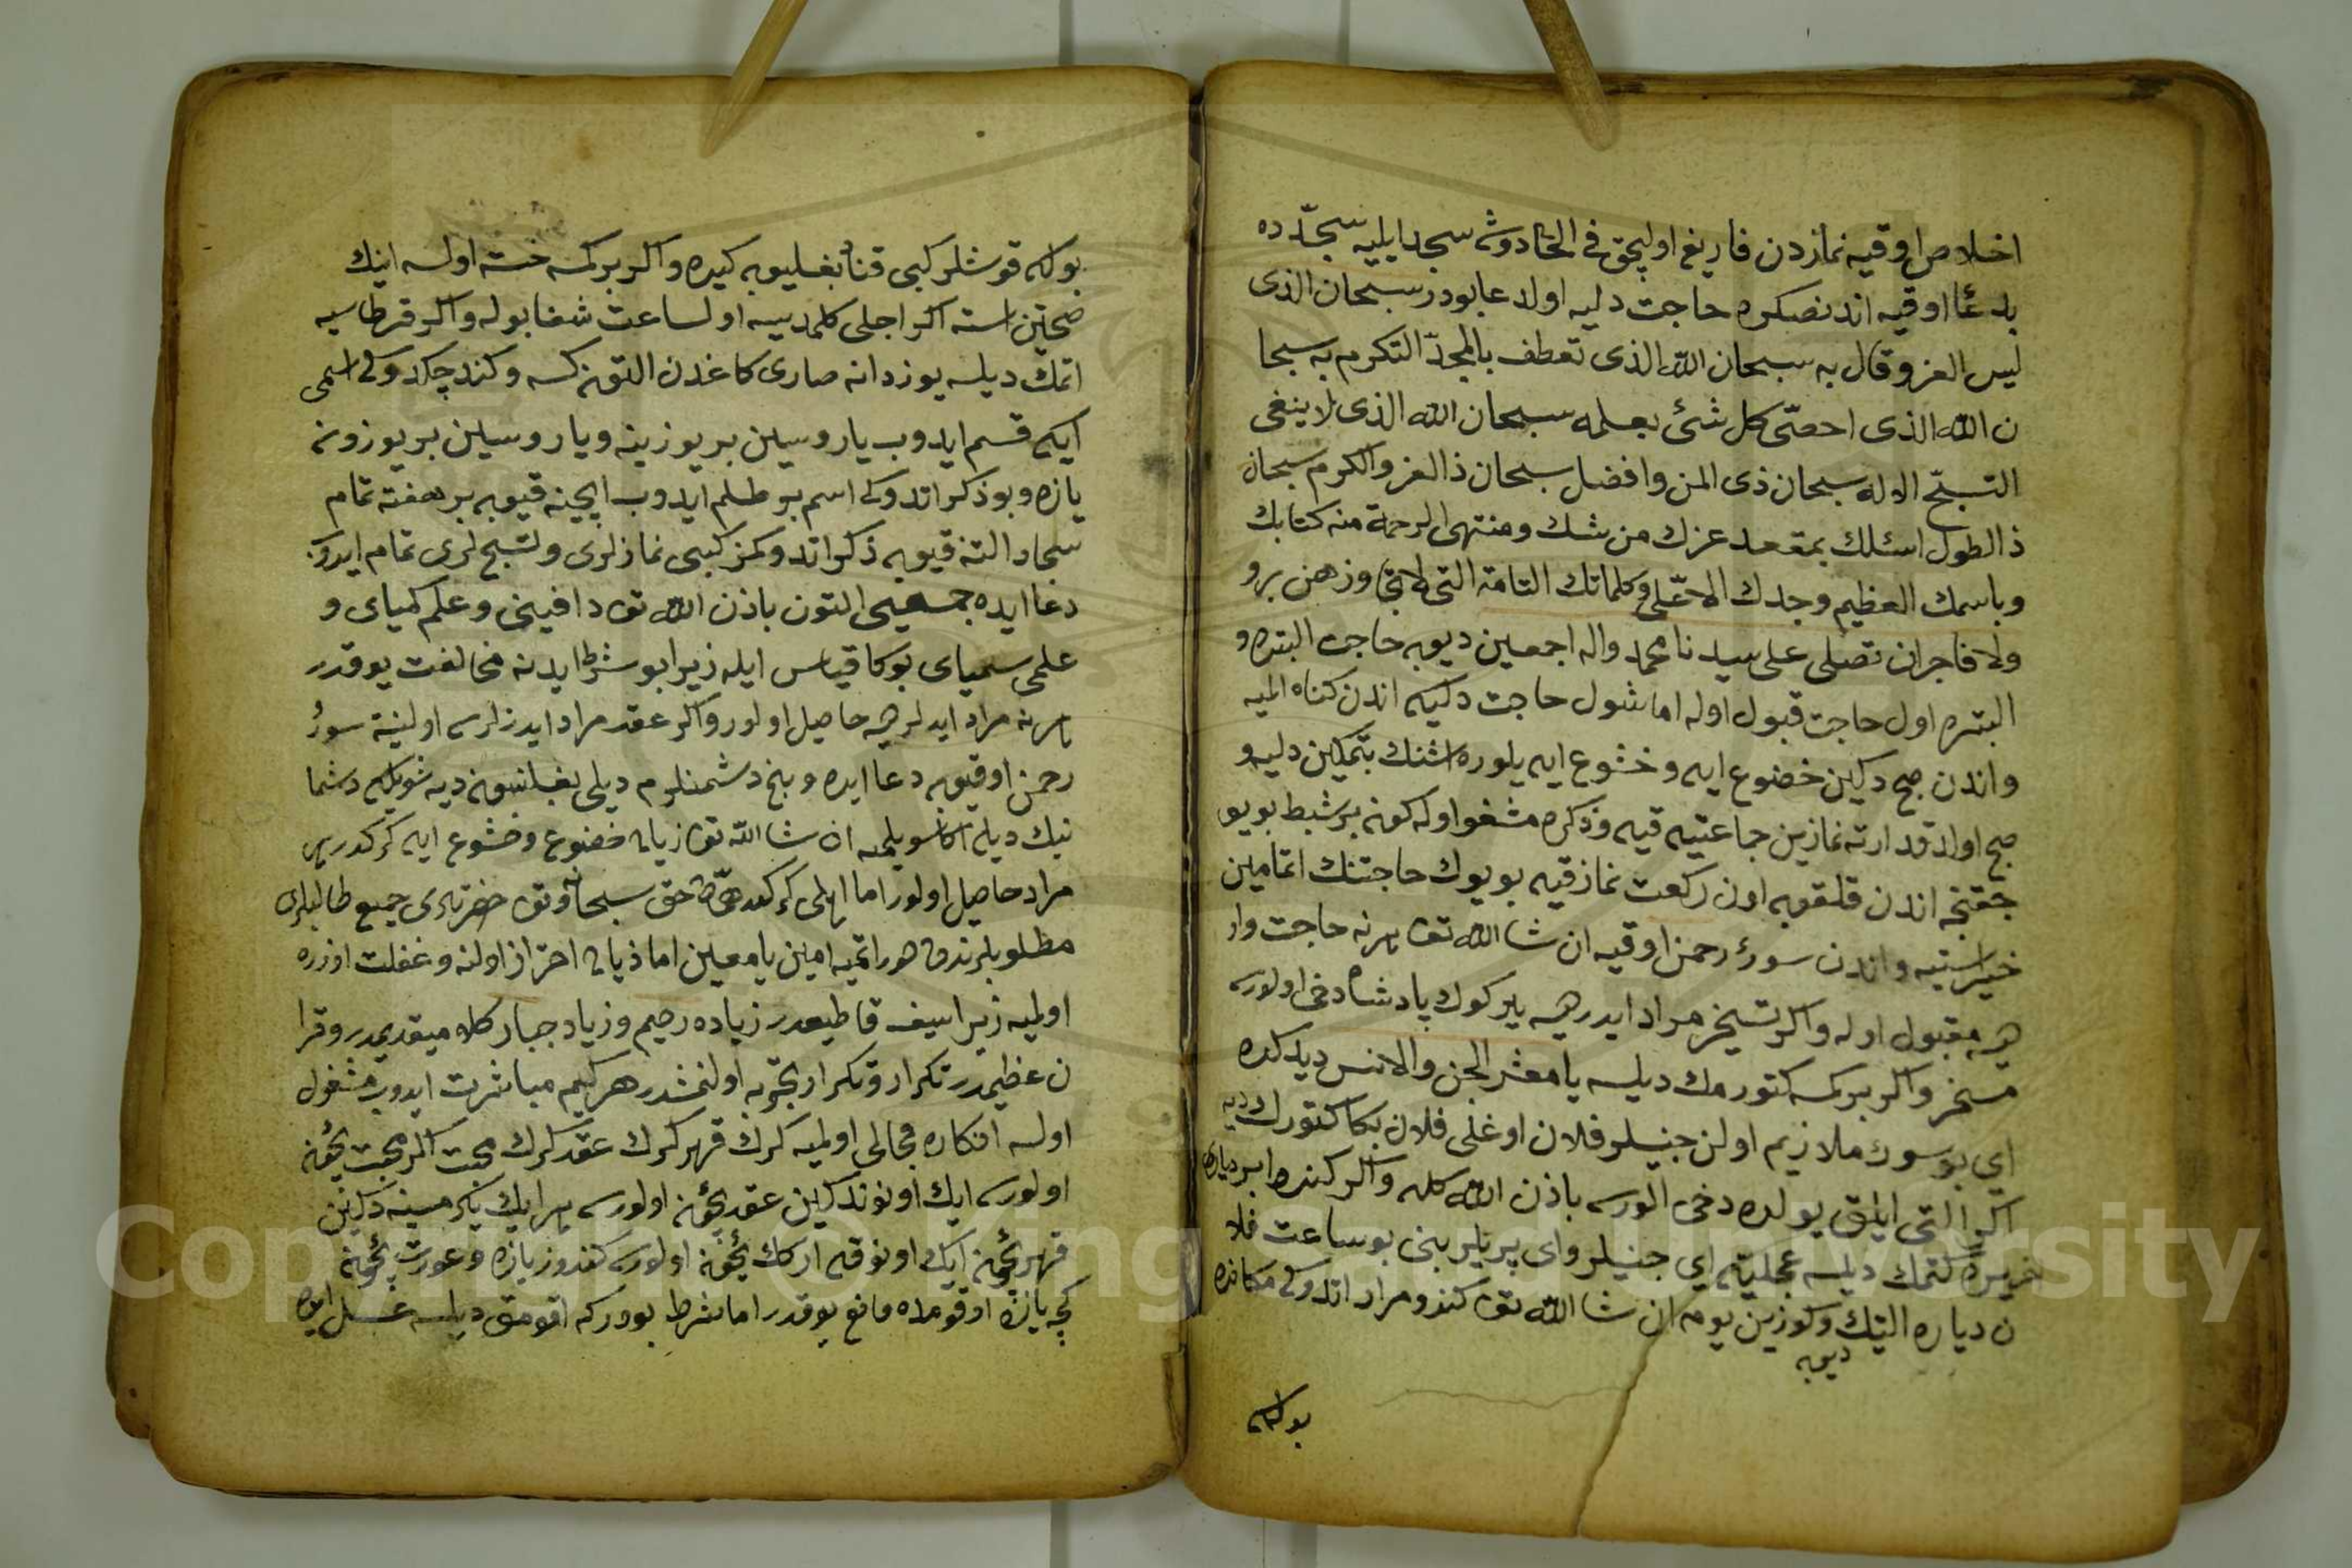 اخلاص اوقیه نمازدن فاریغ اولیجق فی الحال دوشه سجد ایلیه سجده ده
بد عٔا اوقیه اندنصکره حاجت دلیه اولد عا بودر سبحان الذی
لیس العز وقال به سبحان الله الذی تعطف بالمجدّ التکرم به سبحا
ن الله الذی احصّی کل شئ بعلمه سبحان الله الذی لا ینغی
التسبّح الا له سبحان ذی المن وافضل سبحان ذالعز والکرم سبحان
ذالطول اسئلك بمقعد عزك من شك ومنتهی الرحمة منه کتابك
وباسمك العظیم وجدك الاعّلی وکلماتك التامة التی لا یجاوزهن برو
ولا فاجران تصلی علی سیدنا محمد واله اجمعین دیوبه حاجت البتره و
البتره اول حاجت قبول اوله اما شول حاجت دکیه اندن کناه المیه
واندن صح دکین خضوع ایه وخشوع ایه یلوره اشنك بتمکین دلیه و
صح اولد قدا رته نمازین جماعتیه قیه وذکره مشغو اوله کونه بر شبط بویو
جقنجه اندن قلقوبه اون رکعت نماز قیه بویوك حاجتنك اتمامین
خیر استیه واندن سورۀ رحمن اوقیه ان شا الله تع هرنه حاجت وار
هپ مقبول اوله واکر تسخیر مراد ایدرهپ یلر کوك پادشاه دخی اولورسه
مسخر واکر برکسه کتورمك دیلسه یا معشر الجن والانس دیدکده
ای بوسورك ملازیم اولن جنیلر فلان اوغلی فلان بکا کتورك دیه
اکر التی ایلق یولده دخی الورسه باذن الله کله واکر کندو بر دیاره
کتمك دیلسه عجلیتله ای جنیلر وای پریلر بنی بوساعت فلا
ن دیاره الیتك وکوزین یومه ان شا الله تع کندو مراد اتدوکی مکانده
دیوبه
بوله
بوله قوشلر کبی قناۀ بغلیوبه کیده واکر برکسه خسته اولسه اینك
صحتین استه اکر اجلی کلمدیسه اولساعت شفا بوله واکر قرطاسیه
اتمك دیلسه یوزدانه صاری کاغدن التون کسه وکند چکدوکی اسمی
ایکی قسم ایدوب یاروسین بر یوزینه ویاروسین بر یوزونه
یازه وبو ذکر اتدوکی اسم بر طلم ایدوب ایچینه قیوبه بر هفته تمام
سجاد التنه قیوبه ذکر اتدوکمز کبی نمازلری وتسبح لری تمام ایدوب
دعا ایده جمعیحی التون باذن الله تع دافینی وعلم کمیای و
علمی سمیای بوکا قیاس ایله زیرا بو شرط ایدنه مخالفت یوقدر
هرنه مراد ایدلر هپ حاصل اولور واکر عقد مراد ایدرلرسه اولنیة سورۀ
رحمن اوقیوبه دعا ایده وبنم دشمنلرم دیلی بغلنسون دیه شویلکه دشما
نیك دیله اکا سویلمیه ان شا الله تع زیاده خضوع وخشوع ایه کرکدر هر
مراد حاصل اولور اما اهلی کرکدر حتّی حق سبحانه وتع حضرتلری جمیع طالبلری
مطلوبلرندن هور اتمیه امین یا معین اما ذیاده احتراز اولنه وغفلت اوزره
اولمیه زیرا سیف قاطیعدر زیاده رحیم وزیاد جبار کلام قدیمدر وقرا
ن عظیمدر تکرار وتکرار تجربه اولنمشدر هرکیم مباشرت ایدوب مشغول
اولسه انکاره مجالی اولمیه کرك قهر کرك عقد کرك محبت اکر محبت یچۇنه
اولورسه ایك اونوندکین عقد یچۇنه اولورسه هر ایك یکرمسینه دکین
قهر یچۇنه ایك اونوقه ارکك یچۇنه اولورسه کندوز یازه وعورت یچۇنه
کچه یازه اوقوماده مانع یوقدر اما شرط بودرکه اقومق دیلسه غسل ایده
Copyright © King Saud University